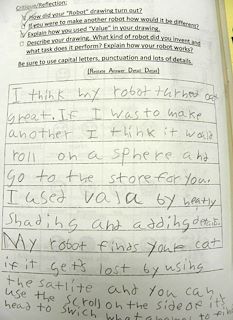 Critique/Reflection:
How did your "Robot" drawing turn out?
If you were to make another robot how would it be different?
Explain how you used "Value" in your drawing.
Describe your drawing. What kind of robot did you invent and
what task does it perform? Explain how your robot works?
Be sure to use capital letters, punctuation and lots of details.
I think my robot turned out
great. If I was to make
another I think it would
roll on a sphere and
go to the store for you.
I used vala by neatly
shading and adding
My robot finds your cat
if it gets lost by using
the satlite and you can
use the scroll on the side of it's
head to swich what animal to